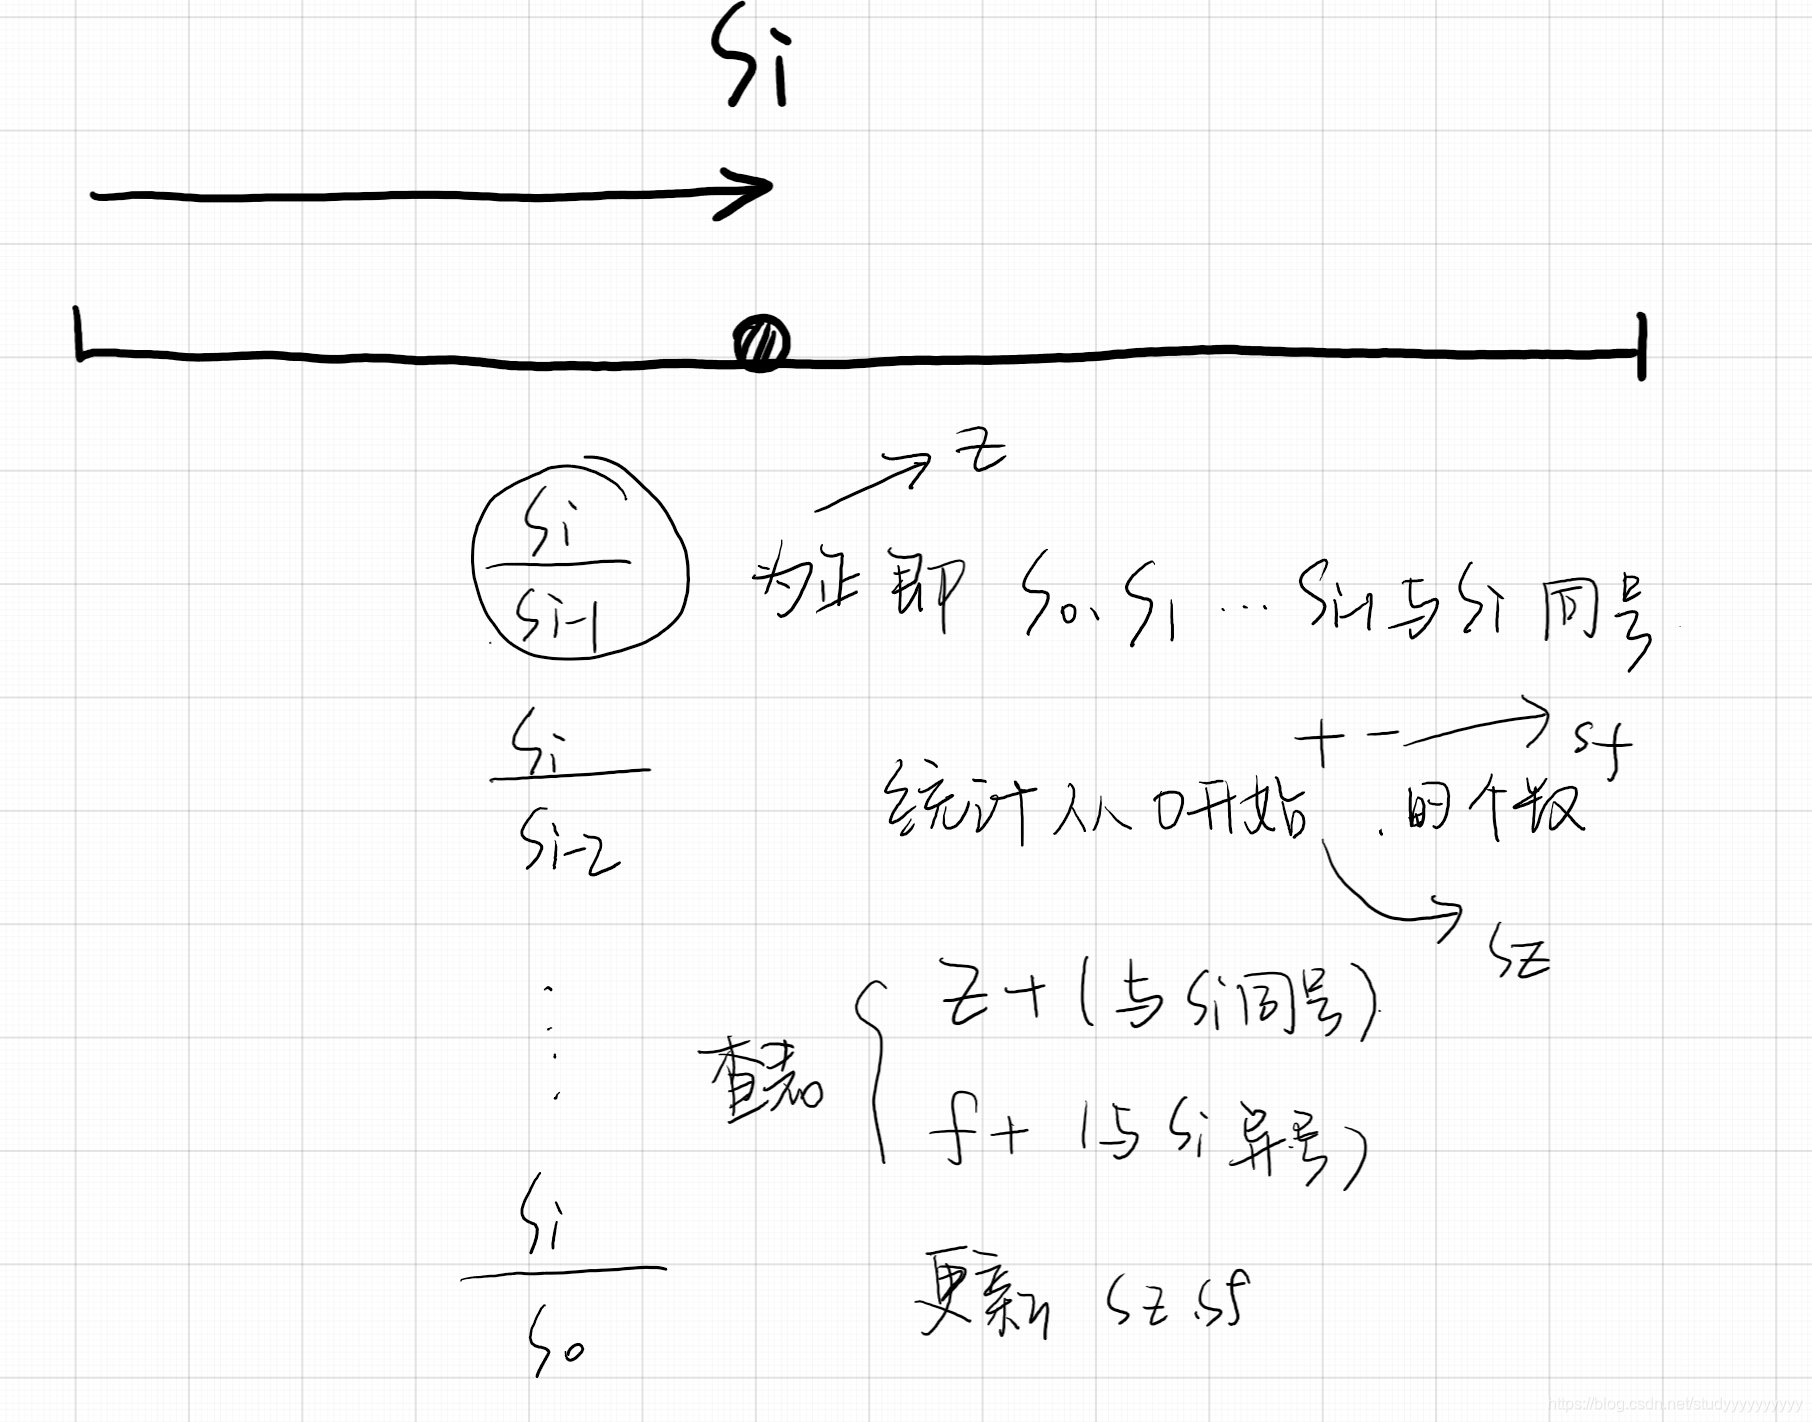 Si
z
Si
Si-1
为正即 S0、S1 … Si-1与Si同号
+ - sf
Si
Si-2
统计从0开始 的个数
sz
z+ (与Si同号)
查表
f+ (与Si异号)
Si
S0
更新 sz.sf
https://blog.csdn.net/studyyyyyyyyyy